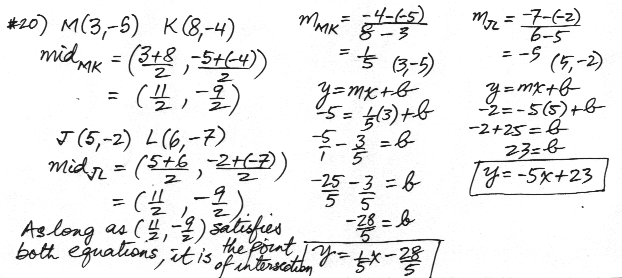 #20) M(3,-5) K(8,-4)
mid_MK = (3+8/2, -5+(-4)/2)
= (11/2, -9/2)
J(5,-2) L(6,-7)
mid_JL = (5+6/2, -2+(-7)/2)
= (11/2, -9/2)
As long as (11/2, -9/2) satisfies
both equations, it is the point
of intersection
m_MK = -4-(-5)/8-3
= 1/5 (3,-5)
y=mx+b
-5 = 1/5(3)+b
-5/1 - 3/5 = b
-25/5 - 3/5 = b
-28/5 = b
y = 1/5x - 28/5
m_JL = -7-(-2)/6-5
= -5 (5,-2)
y=mx+b
-2=-5(5)+b
-2+25=b
23=b
y=-5x+23